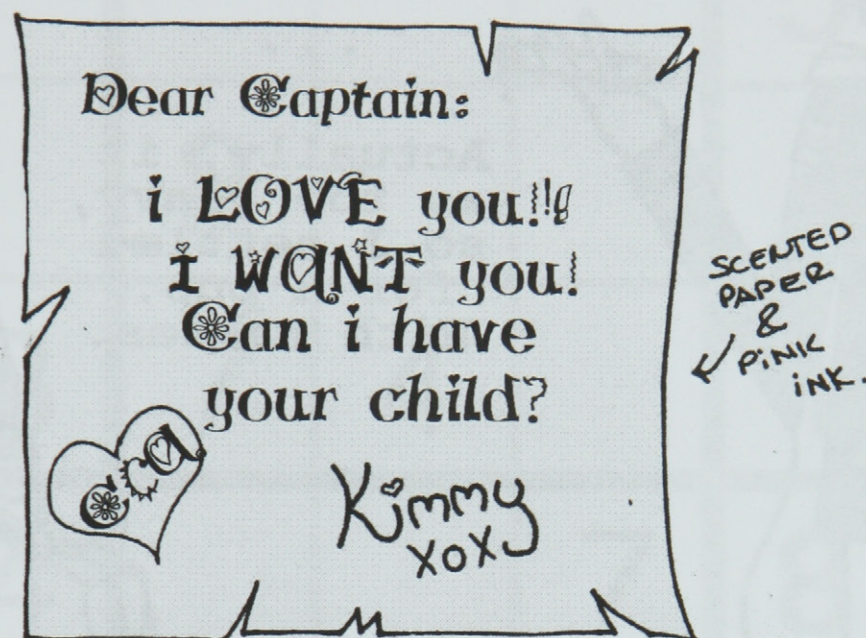 Dear Captain:
i LOVE you!!!
i WANT you!
Can i have
your child?
Kimmy
XOX
SCENTED
PAPER
&
PINK
INK.